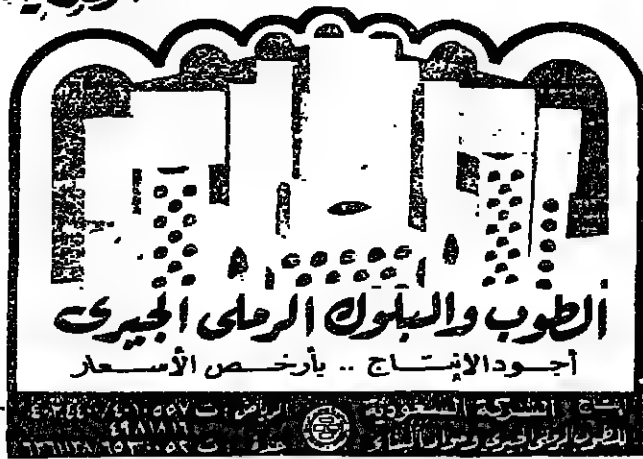 الطوب والبلوك الرملى الجيرى
أجود الإنتاج .. بأرخص الأسعار
إنتاج الشركة السعودية
للطوب الرملى الجيرى ومواد البناء
الرياض : ت ٤٠١٠٥٥٧ / ٤٠٣٤٤٠٠
٤٩٨١٨١٦
ت ٦٥٣٠٠٥٢